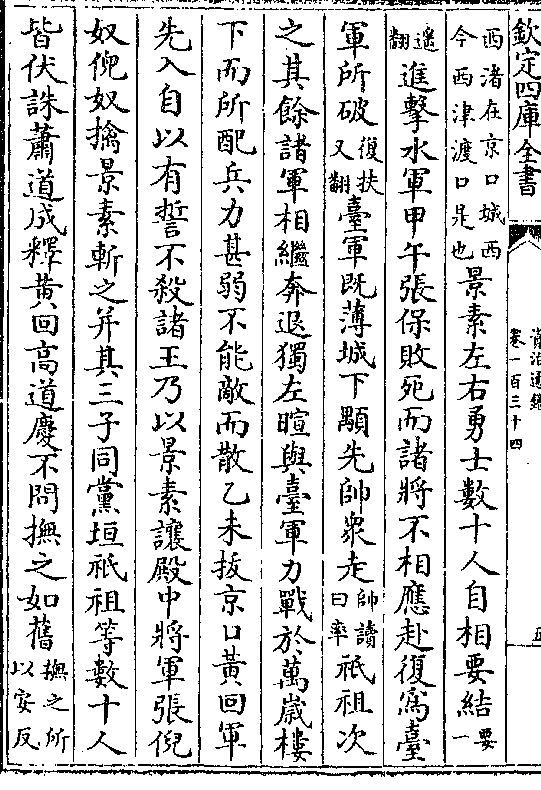 欽定四庫全書
資治通鑑
卷一百三十四
西渚在京口城西
今西津渡口是也
景素左右勇士數十人自相要結
要一
遙翻
進擊水軍甲午張保敗死而諸將不相應赴復爲臺
軍所破
復扶
又翻
臺軍既薄城下顒先帥衆走
帥讀
曰率
祇祖次
之其餘諸軍相繼奔退獨左暄與臺軍力戰於萬歲樓
下而所配兵力甚弱不能敵而散乙未拔京口黃回軍
先入自以有誓不殺諸王乃以景素讓殿中將軍張倪
奴倪奴擒景素斬之并其三子同黨垣祇祖等數十人
皆伏誅蕭道成釋黃回高道慶不問撫之如舊
撫之所
以安反